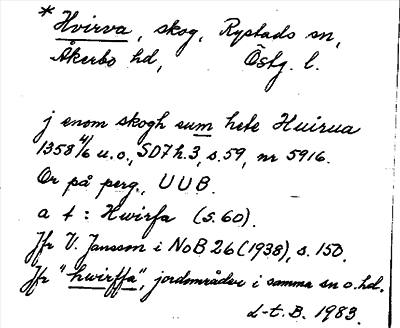 * Hvirva, skog, Rystads sn,
Åkerbo hd, Östg. l.
j enom skogh sum hete Huirua
1358 4/6 u.o., SD7 h.3, s.59, nr 5916.
Or på perg., UUB.
a t : Hwirfa (s.60).
Jfr V. Jansson i NoB 26 (1938), s. 150.
Jfr "hwirffa", jordområde i samma sn o. hd.
L-t. B. 1983.